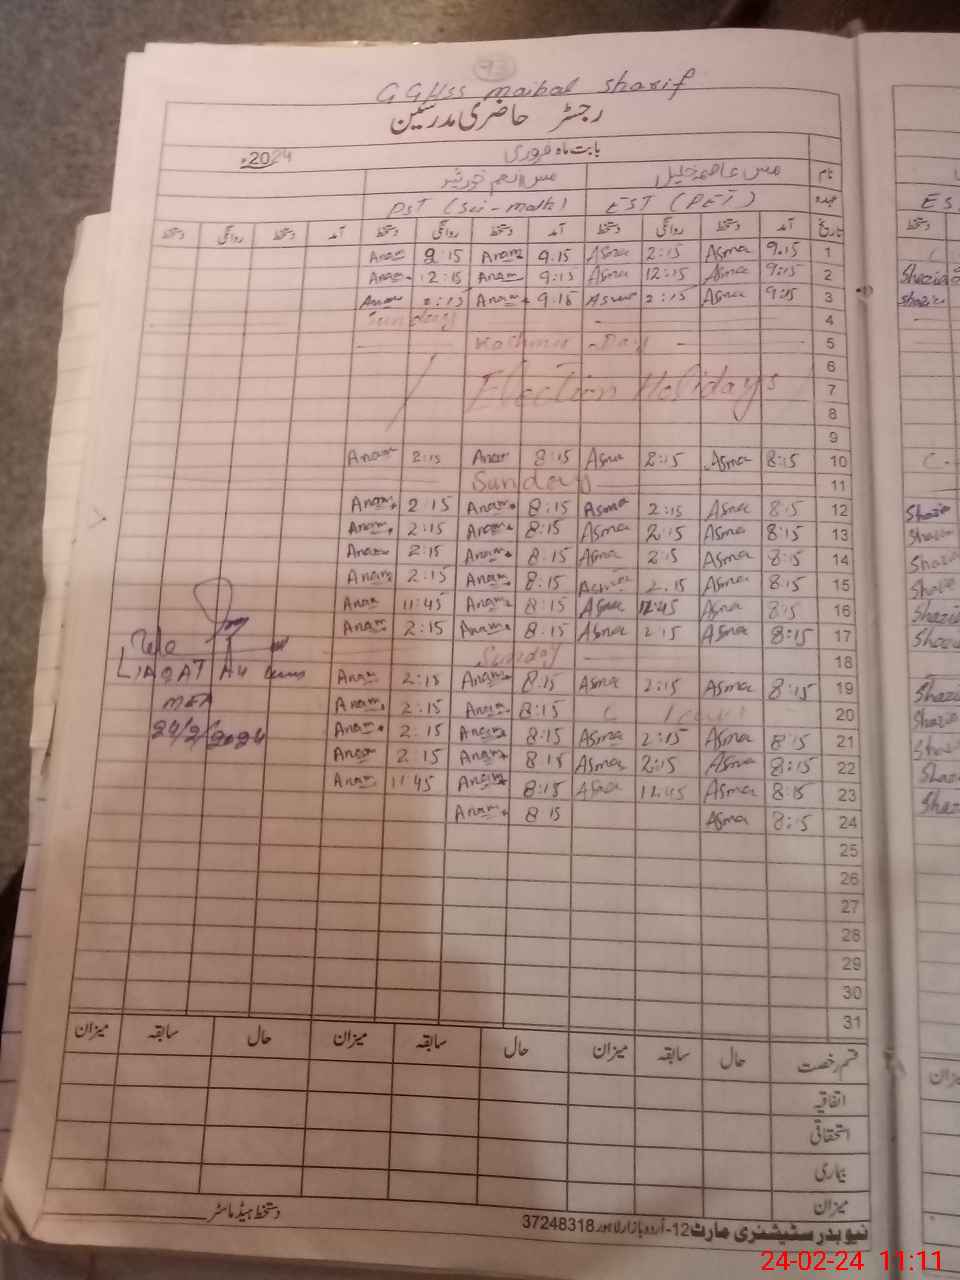 93
GGHSS maibal sharif
رجسٹر حاضری مدرسین
بابت ماہ فروری 2024ء
نام مس عاصمہ خلیل مس انعم خورشید
عہدہ EST (PET) PST (Sci-math)
تاریخ آمد دستخط روانگی دستخط آمد دستخط روانگی دستخط آمد دستخط روانگی دستخط
1 9.15 Asma 2:15 Asma 9.15 Anam 2:15 Anam
2 9:15 Asma 12:15 Asma 9:15 Anam 12:15 Anam
3 9:15 Asma 2:15 Asma 9:15 Anam 2:15 Anam
4 Sunday
5 Kashmir Day
6
7 Election Holidays
8
9
10 8:15 Asma 2:15 Asma 8:15 Anam 2:15 Anam
11 Sunday
12 8:15 Asma 2:15 Asma 8:15 Anam 2:15 Anam
13 8:15 Asma 2:15 Asma 8:15 Anam 2:15 Anam
14 8:15 Asma 2:15 Asma 8:15 Anam 2:15 Anam
15 8:15 Asma 2.15 Asma 8:15 Anam 2:15 Anam
16 8:15 Asma 11:45 Asma 8:15 Anam 11:45 Anam
17 8:15 Asma 2:15 Asma 8:15 Anam 2:15 Anam
18 Sunday
19 8:15 Asma 2:15 Asma 8:15 Anam 2:15 Anam
20 C leave 8:15 Anam 2:15 Anam
21 8:15 Asma 2:15 Asma 8:15 Anam 2:15 Anam
22 8:15 Asma 2:15 Asma 8:15 Anam 2:15 Anam
23 8:15 Asma 11:45 Asma 8:15 Anam 11:45 Anam
24 8:15 Asma 8:15 Anam
25
26
27
28
29
30
31
LIAQAT Ali
MEA
24/2/2024
قسم رخصت حال سابقہ میزان حال سابقہ میزان حال سابقہ میزان
اتفاقیہ
استحقاقی
بیماری
میزان
دستخط ہیڈ ماسٹر
نیو بدر سٹیشنری مارٹ 12-اُردو بازار لاہور 37248318
ES
دستخط
Shazia
Shazia
C-
Shazia
Shazia
Shazia
Shazia
Shazia
Shazia
Shazia
Shazia
Shazia
Shazia
Shazia
میزان
24-02-24 11:11